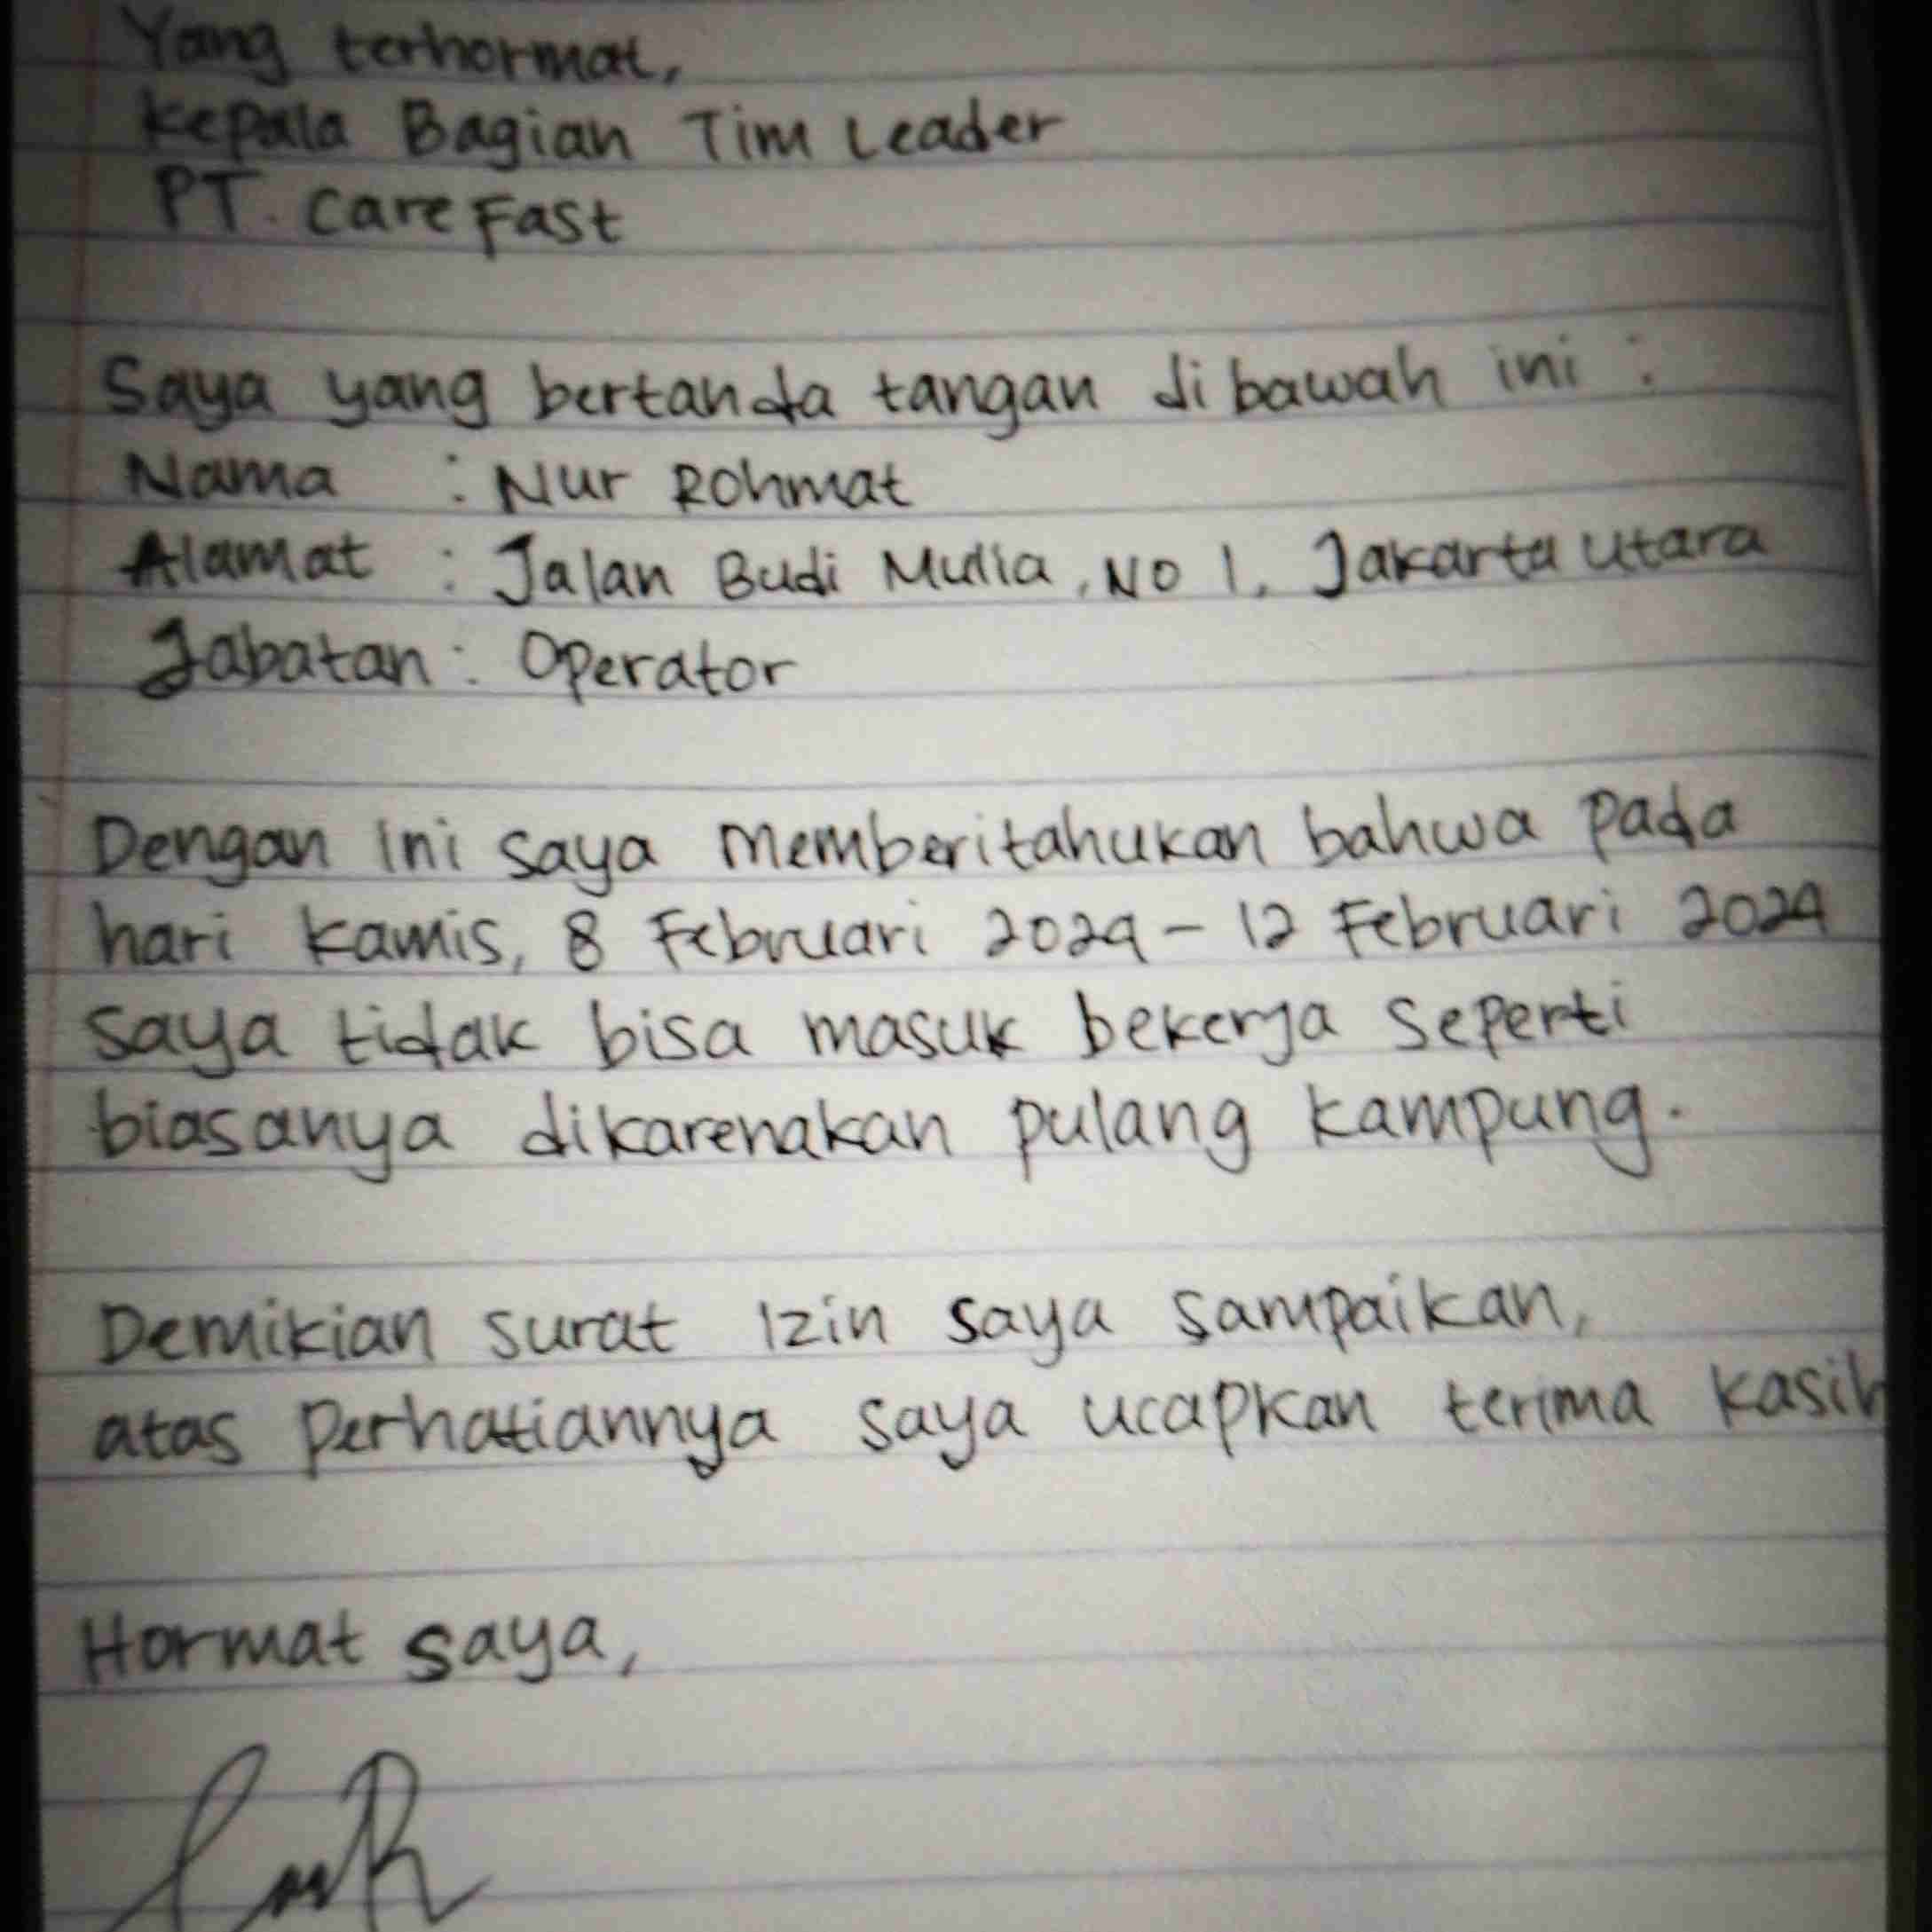 Yang terhormat,
Kepala Bagian Tim Leader
PT. Care Fast
Saya yang bertanda tangan dibawah ini :
Nama : Nur Rohmat
Alamat : Jalan Budi Mulia, No 1, Jakarta Utara
Jabatan : Operator
Dengan ini saya memberitahukan bahwa pada
hari kamis, 8 Februari 2024 - 12 Februari 2024
saya tidak bisa masuk bekerja seperti
biasanya dikarenakan pulang kampung.
Demikian surat izin saya sampaikan,
atas perhatiannya saya ucapkan terima kasih
Hormat saya,